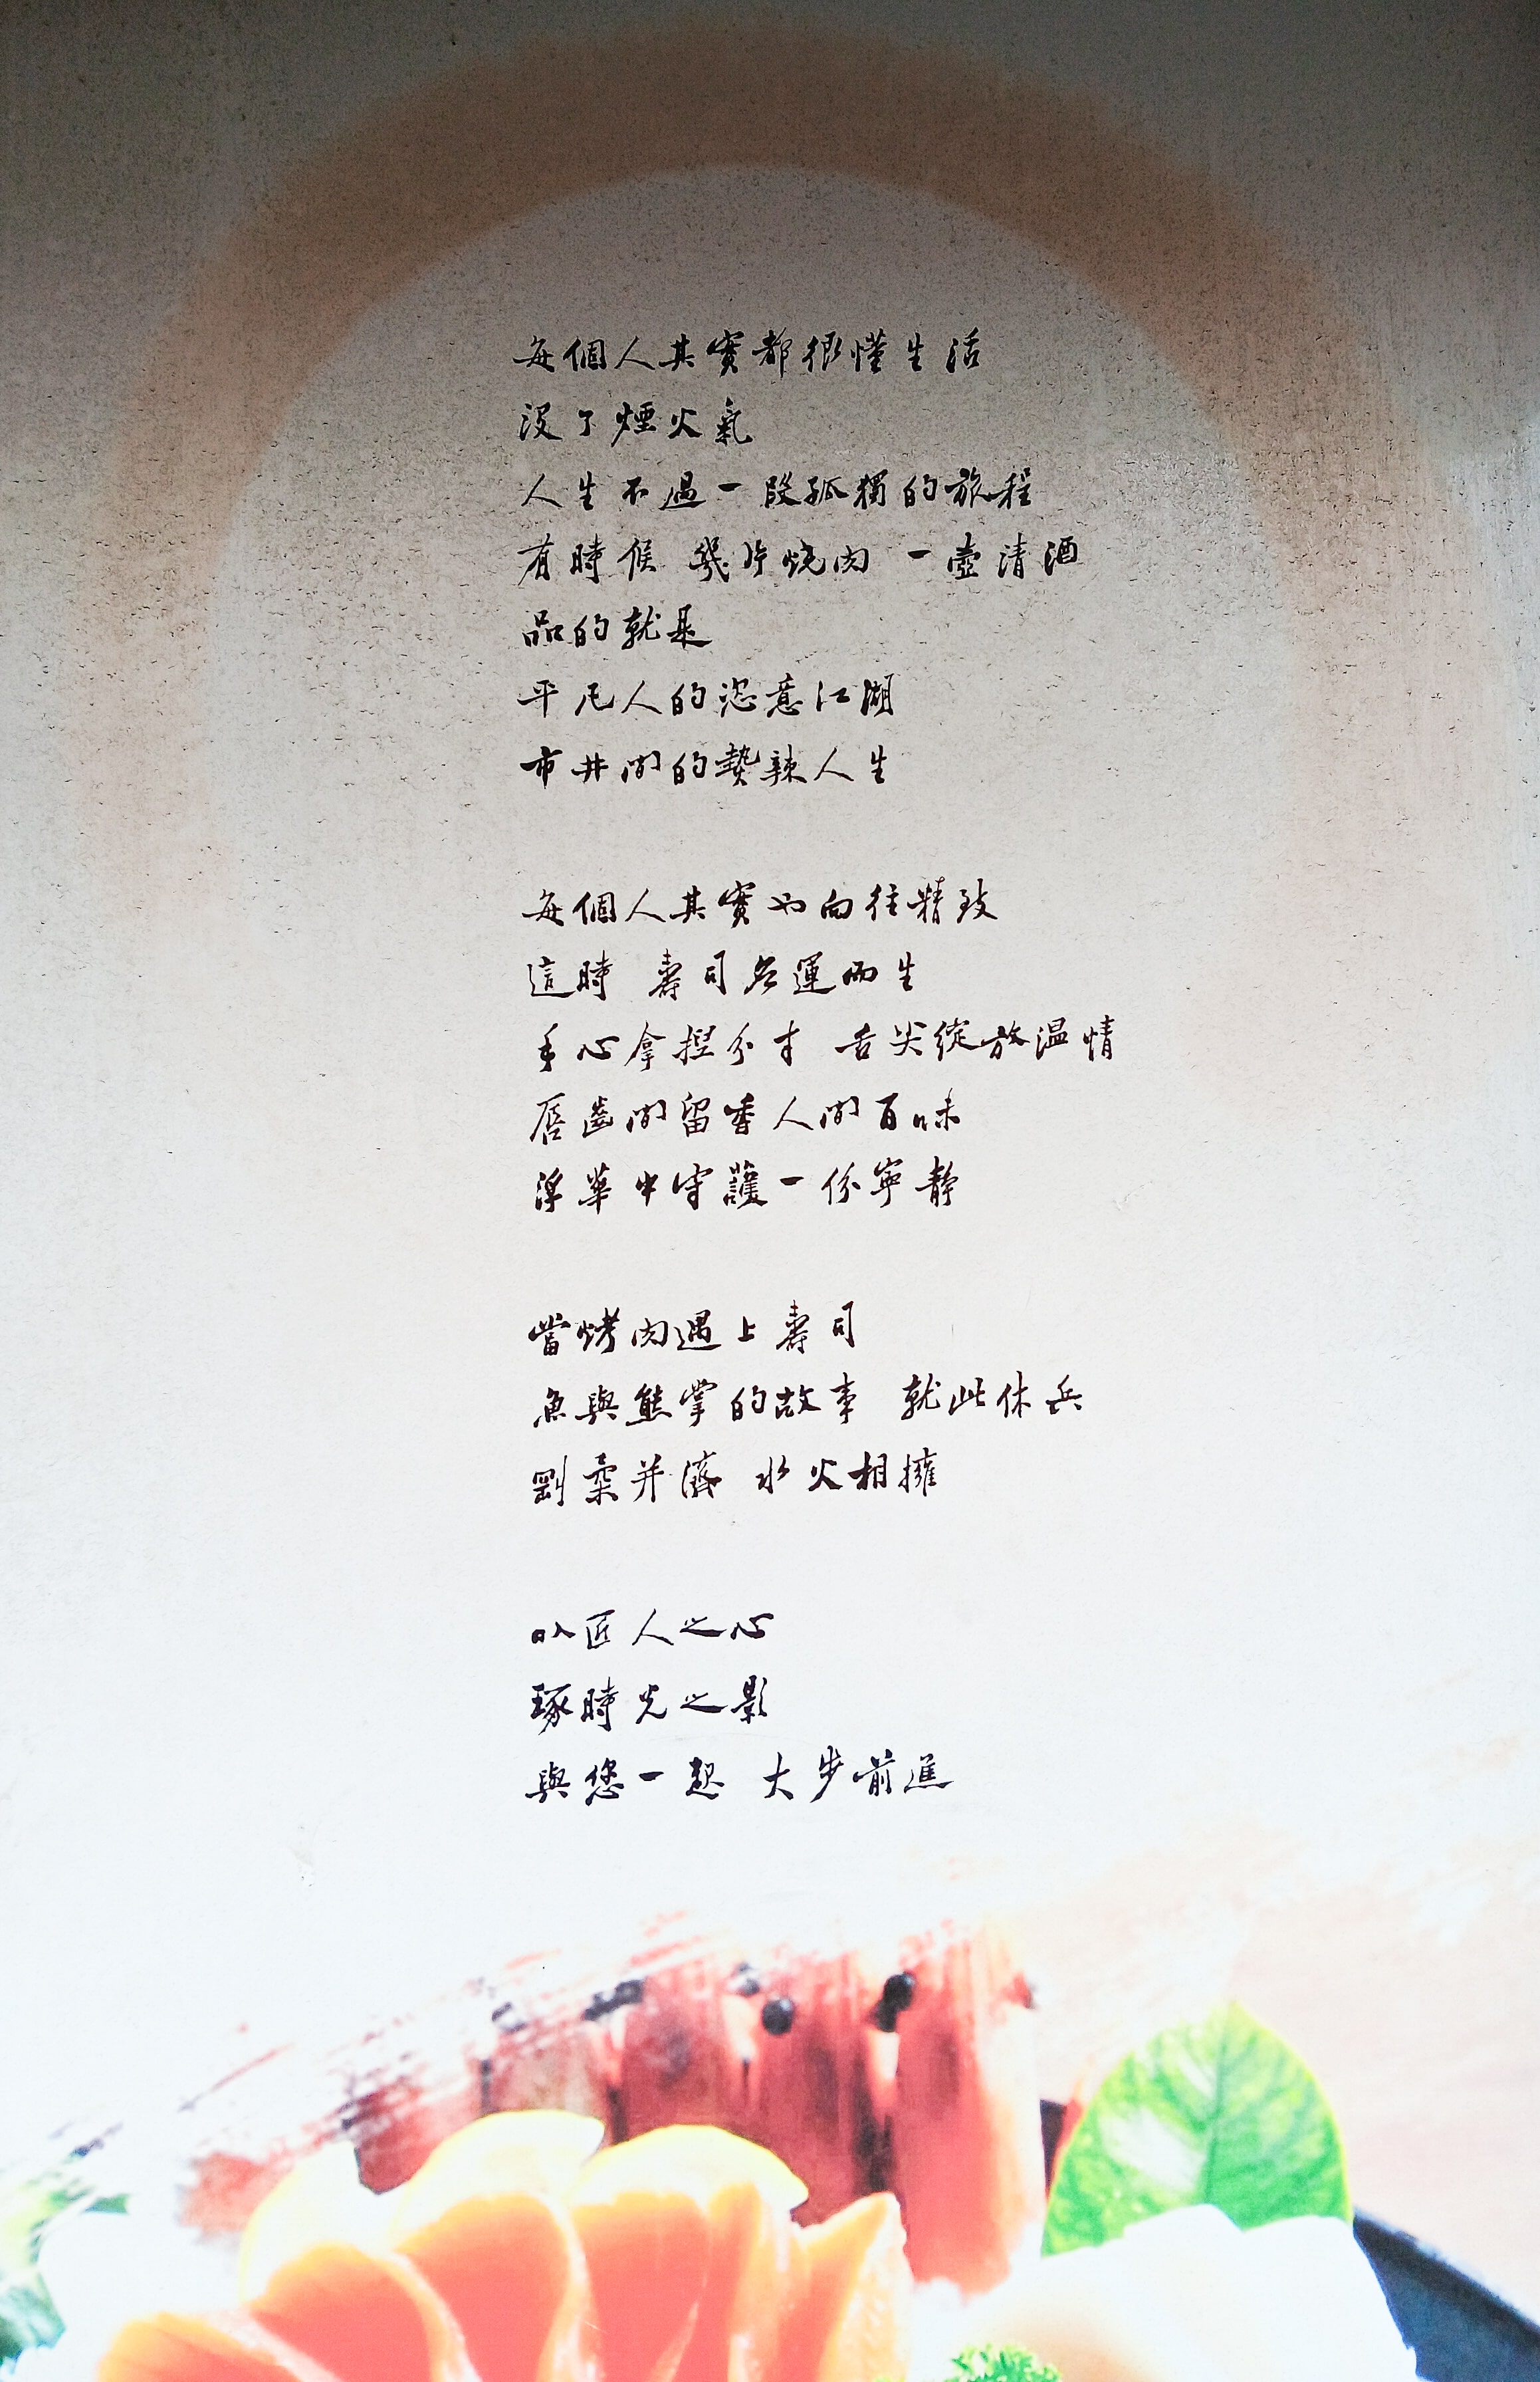 每個人其實都很懂生活
沒了煙火氣
人生不過一段孤獨的旅程
有時候 幾片燒肉 一壺清酒
品的就是
平凡人的恣意江湖
市井間的熱辣人生
每個人其實也向往精致
這時 壽司應運而生
手心拿捏分寸 舌尖綻放溫情
唇齒間留香人間百味
浮華中守護一份寧靜
當烤肉遇上壽司
魚與熊掌的故事 就此休兵
剛柔并濟 水火相擁
以匠人之心
琢時光之影
與您一起 大步前進